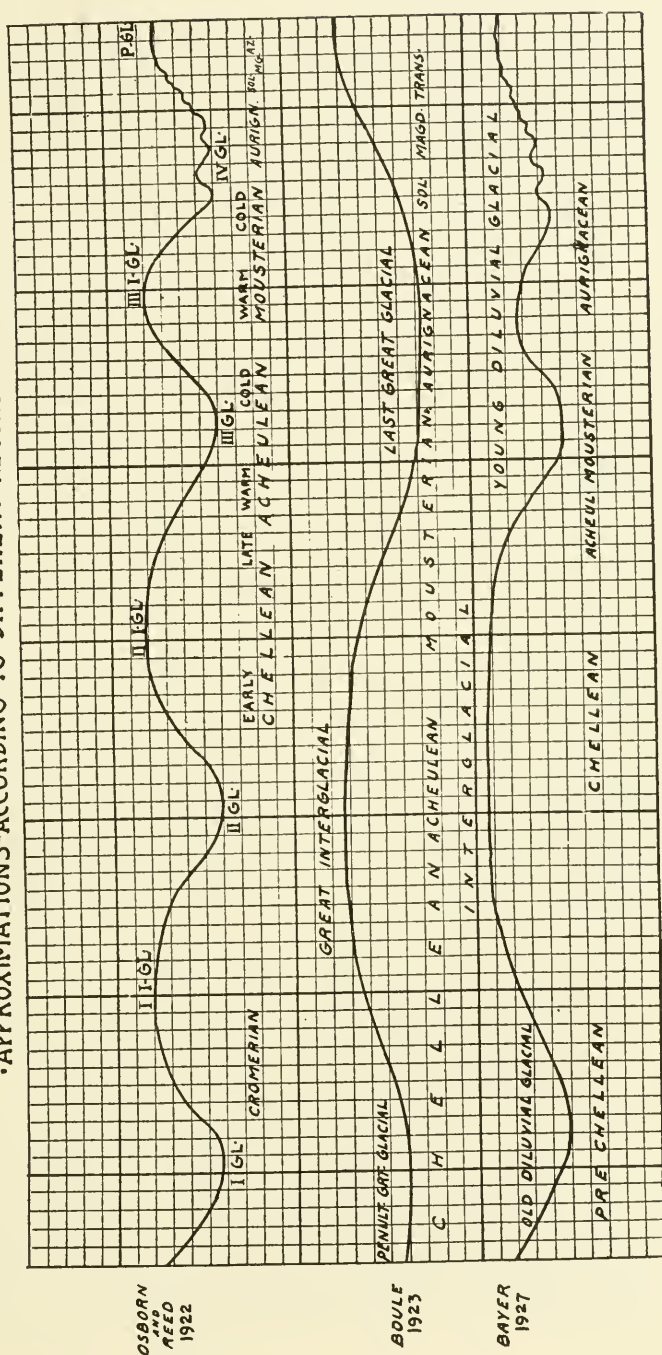 ·APPROXIMATIONS ACCORDING TO DIFFERENT
OSBORN
AND
REED
1922
I GL·
I I·GL·
II GL·
II I·GL·
III GL·
III I·GL·
IV GL·
P.GL·
CROMERIAN
EARLY LATE WARM COLD WARM COLD
CHELLEAN ACHEULEAN MOUSTERIAN AURIGN. SOL. MG. AZ·
BOULE
1923
PENULT. GRT. GLACIAL GREAT INTERGLACIAL LAST GREAT GLACIAL
CHELLEAN ACHEULEAN MOUSTERIAN AURIGNACEAN SOL· MAGD. TRANS·
BAYER
1927
OLD DILUVIAL GLACIAL INTERGLACIAL YOUNG DILUVIAL GLACIAL
PRE CHELLEAN CHELLEAN ACHEUL MOUSTERIAN AURIGNACEAN